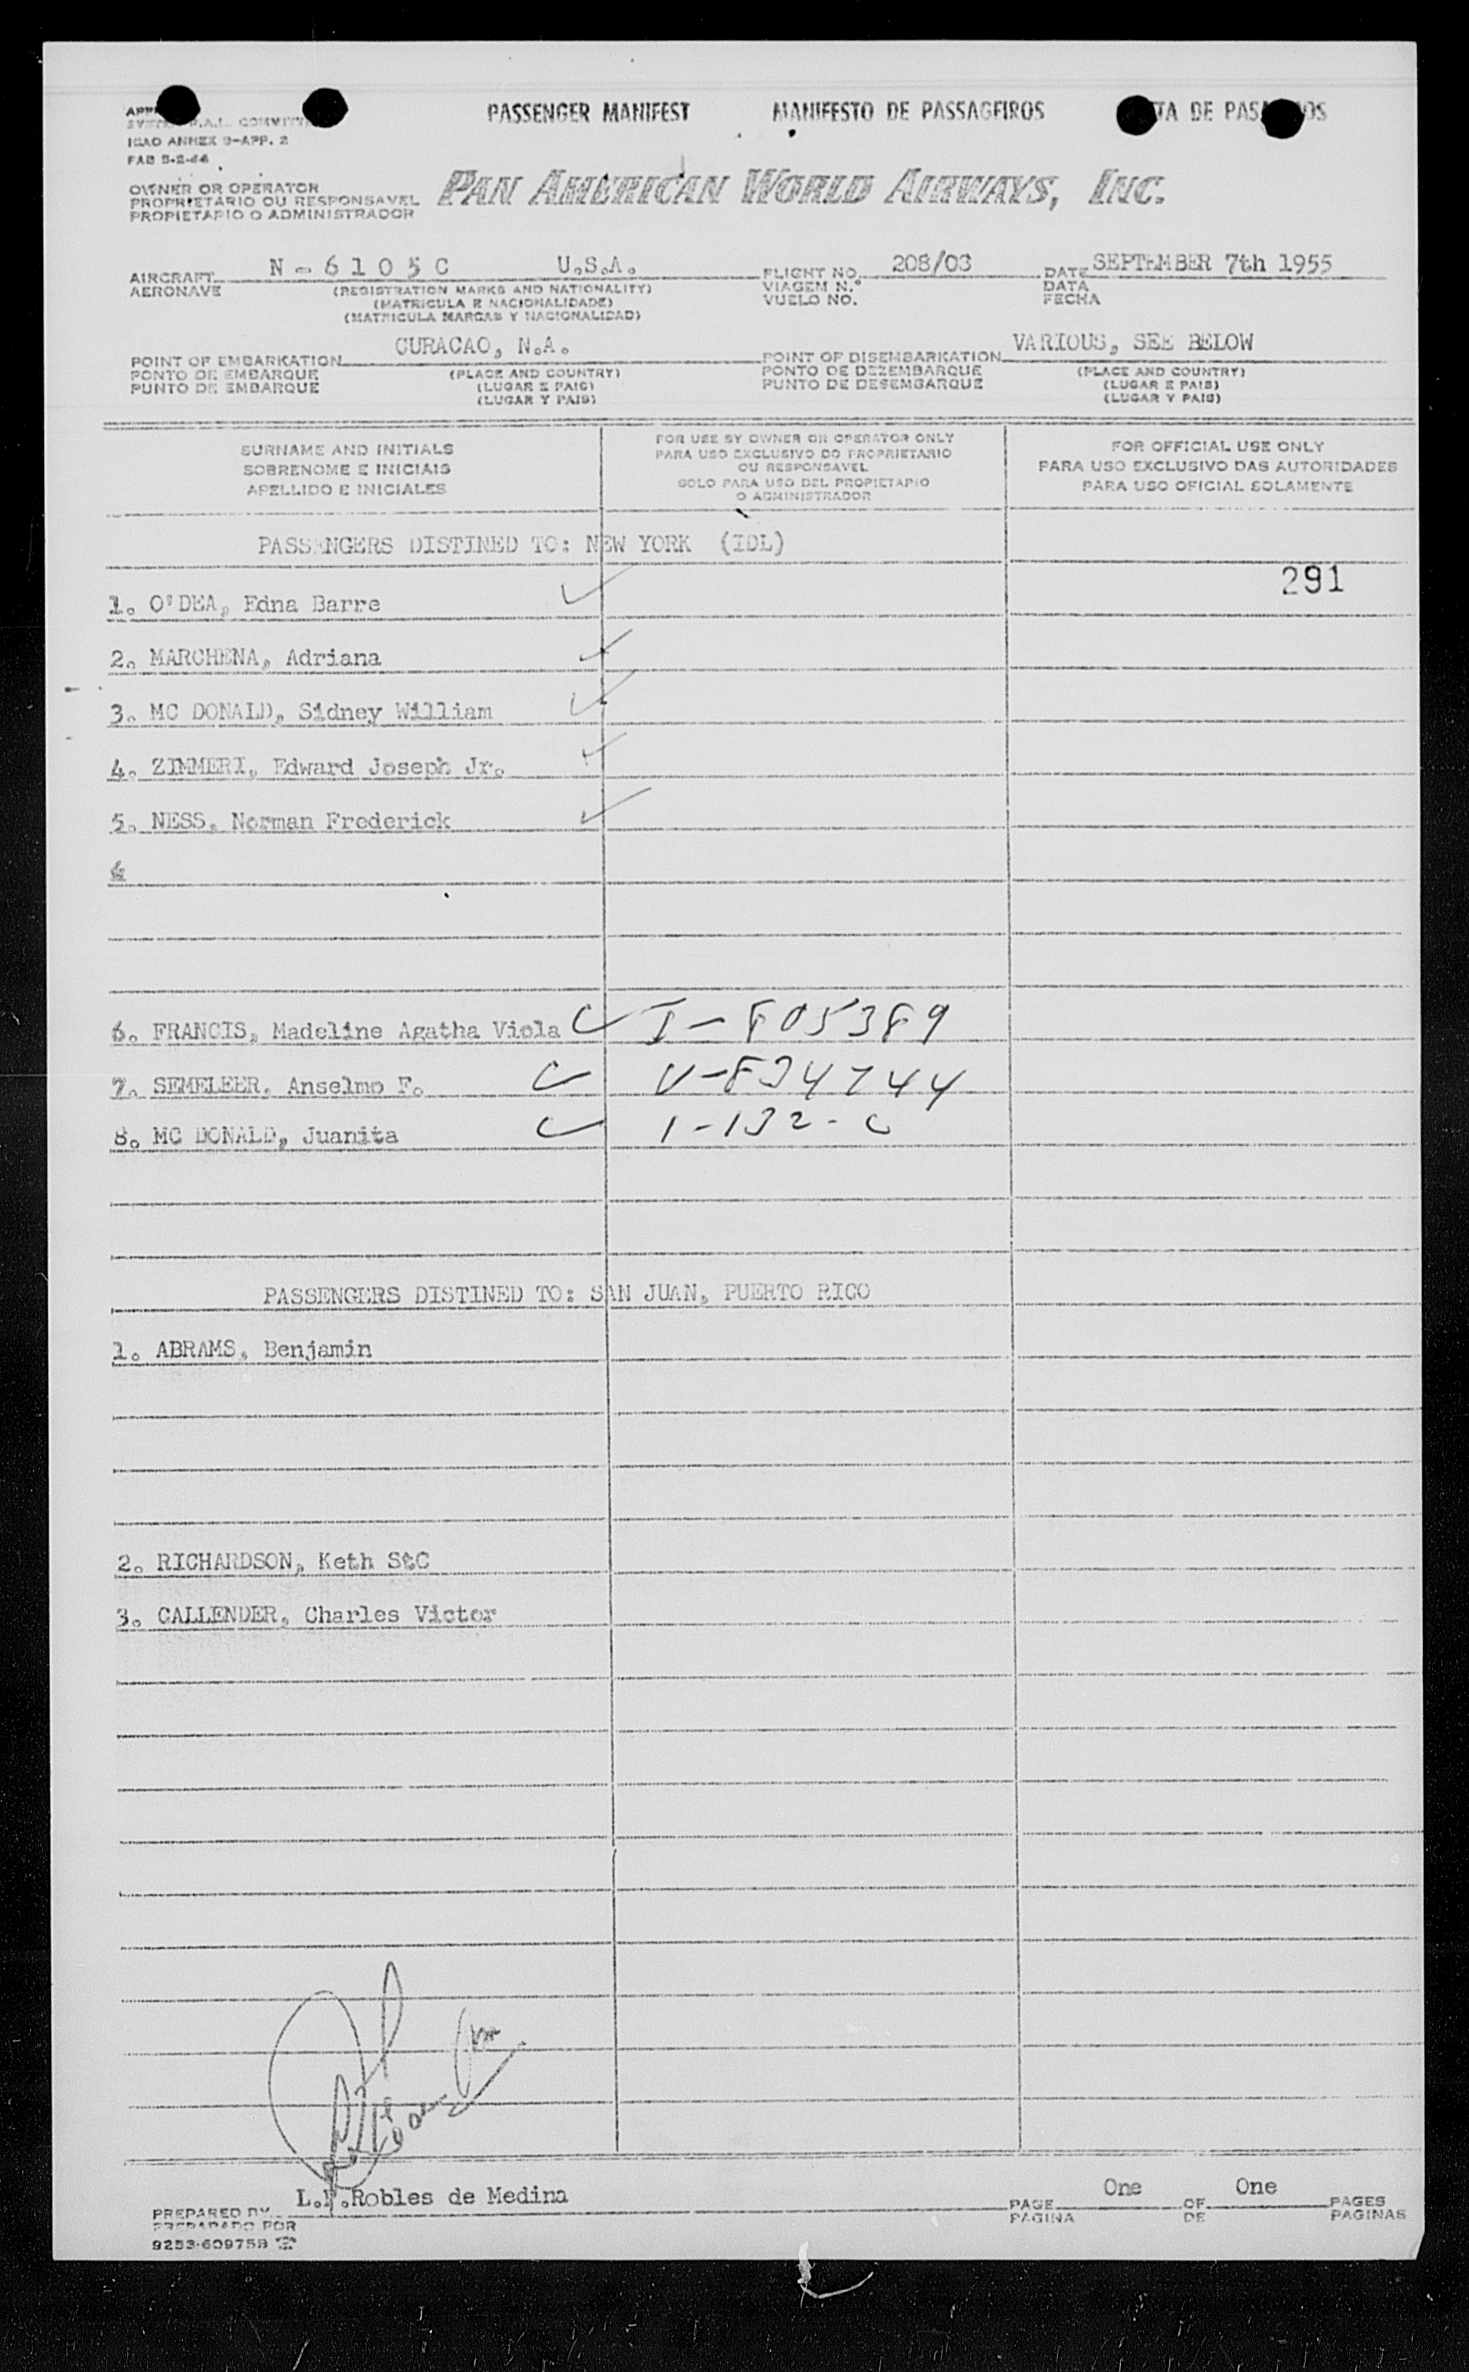 PASSENGER MANIFEST MANIFESTO DE PASSAGEIROS TA DE PAS OS
ICAO ANNEX 9-APP. 2
OWNER OR OPERATOR
PROPRIETARIO OU RESPONSAVEL
PROPIETARIO O ADMINISTRADOR
PAN AMERICAN WORLD AIRWAYS, INC.
AIRCRAFT N-6105C U.S.A. FLIGHT NO. 208/03 DATE SEPTEMBER 7th 1955
AERONAVE (REGISTRATION MARKS AND NATIONALITY) VIAGEM N.° DATA
(MATRICULA E NACIONALIDADE) VUELO NO. FECHA
(MATRICULA MARCAS Y NACIONALIDAD)
POINT OF EMBARKATION CURACAO, N.A. POINT OF DISEMBARKATION VARIOUS, SEE BELOW
PONTO DE EMBARQUE (PLACE AND COUNTRY) PONTO DE DEZEMBARQUE (PLACE AND COUNTRY)
PUNTO DE EMBARQUE (LUGAR E PAIS) PUNTO DE DESEMBARQUE (LUGAR E PAIS)
(LUGAR Y PAIS) (LUGAR Y PAIS)
SURNAME AND INITIALS
SOBRENOME E INICIAIS
APELLIDO E INICIALES
FOR USE BY OWNER OR OPERATOR ONLY
PARA USO EXCLUSIVO DO PROPRIETARIO
OU RESPONSAVEL
SOLO PARA USO DEL PROPIETARIO
O ADMINISTRADOR
FOR OFFICIAL USE ONLY
PARA USO EXCLUSIVO DAS AUTORIDADES
PARA USO OFICIAL SOLAMENTE
PASSENGERS DISTINED TO: NEW YORK (IDL)
291
1. O'DEA, Edna Barre
2. MARCHENA, Adriana
3. MC DONALD, Sidney William
4. ZIMMERI, Edward Joseph Jr.
5. NESS, Norman Frederick
6
6. FRANCIS, Madeline Agatha Viola I-805389
7. SEMELEER, Anselmo F. V-834744
8. MC DONALD, Juanita 1-132-C
PASSENGERS DISTINED TO: SAN JUAN, PUERTO RICO
1. ABRAMS, Benjamin
2. RICHARDSON, Keth StC
3. CALLENDER, Charles Victor
PREPARED BY L.P.Robles de Medina PAGE One OF One PAGES
PREPARADO POR PAGINA DE PAGINAS
9253-60975B